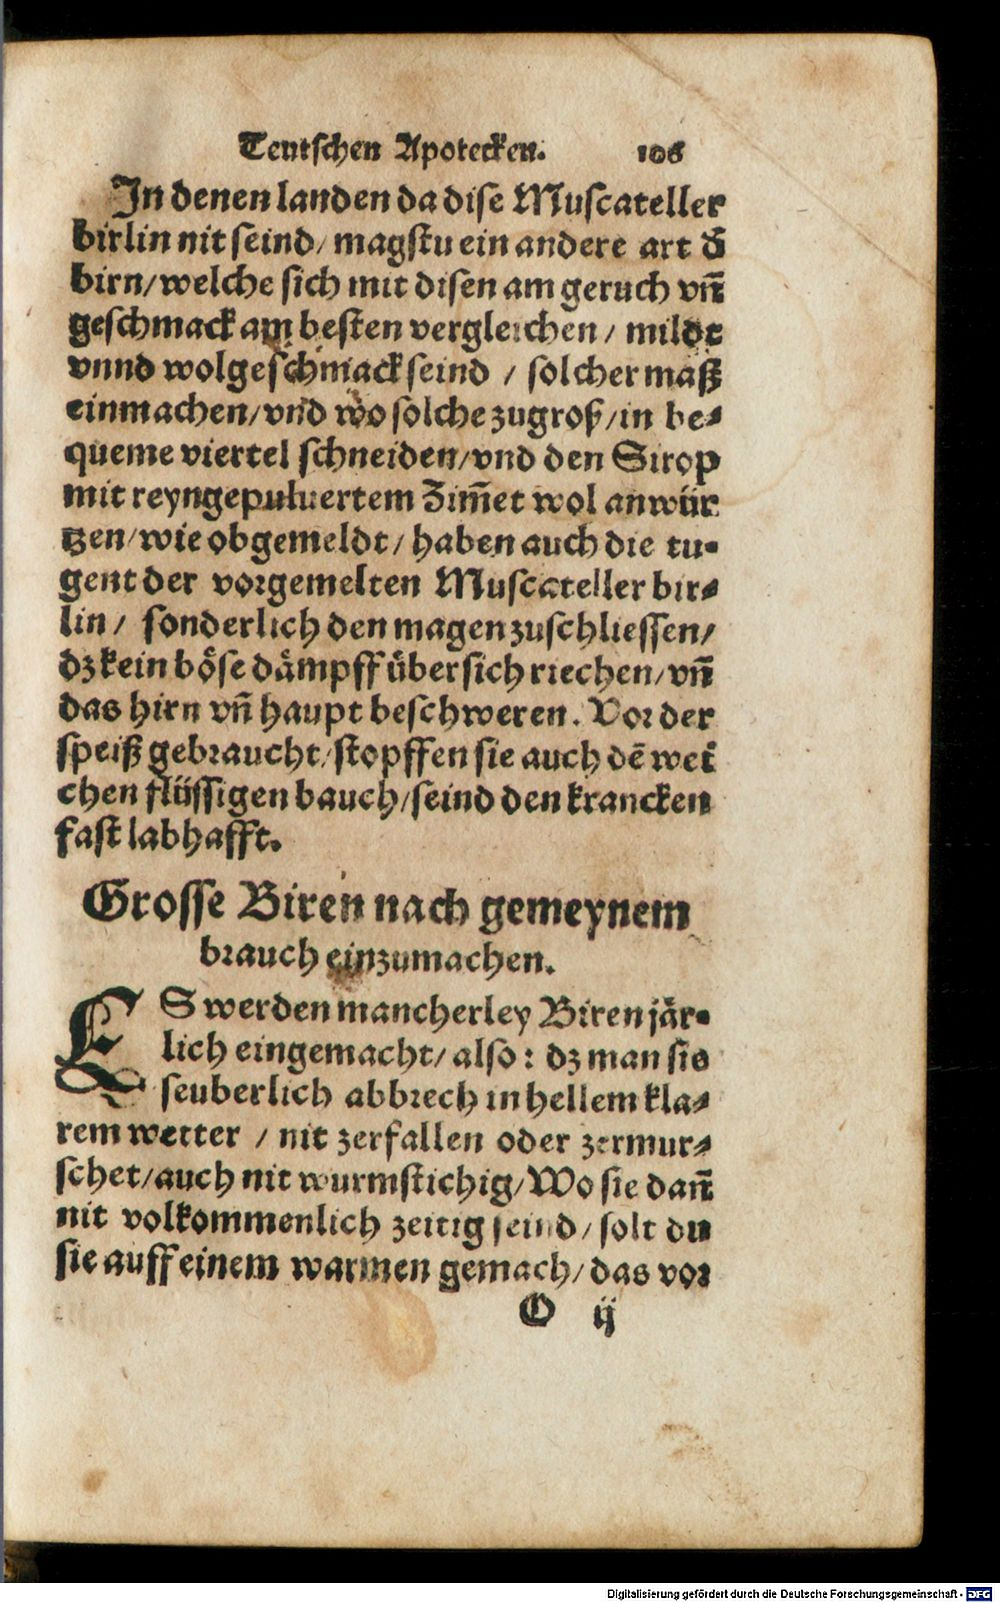 Teutschen Apotecken. 106
In denen landen da dise Muscateller
birlin nit seind/ magstu ein andere art d̄
birn/welche sich mit disen am geruch vñ
geschmack am besten vergleichen / mildt
vnnd wolgeschmack seind / solcher maß
einmachen/vnd wo solche zugroß/in be-
queme viertel schneiden/vnd den Sirop
mit reyngepuluertem Zim̄et wol anwür
tzen/wie obgemeldt/ haben auch die tu-
gent der vorgemelten Muscateller bir-
lin/ sonderlich den magen zuschliessen/
dz kein böse dämpff übersich riechen/vñ
das hirn vñ haupt beschweren. Vor der
speiß gebraucht/stopffen sie auch dē wei
chen flüssigen bauch/seind den krancken
fast labhafft.
Grosse Biren nach gemeynem
brauch einzumachen.
ES werden mancherley Biren jär-
lich eingemacht/ also: dz man sie
seuberlich abbrech in hellem kla-
rem wetter / nit zerfallen oder zermur-
schet/auch nit wurmstichig/Wo sie dañ
nit volkommenlich zeitig seind/ solt du
sie auff einem warmen gemach/ das vor
O ij
Digitalisierung gefördert durch die Deutsche Forschungsgemeinschaft - DFG